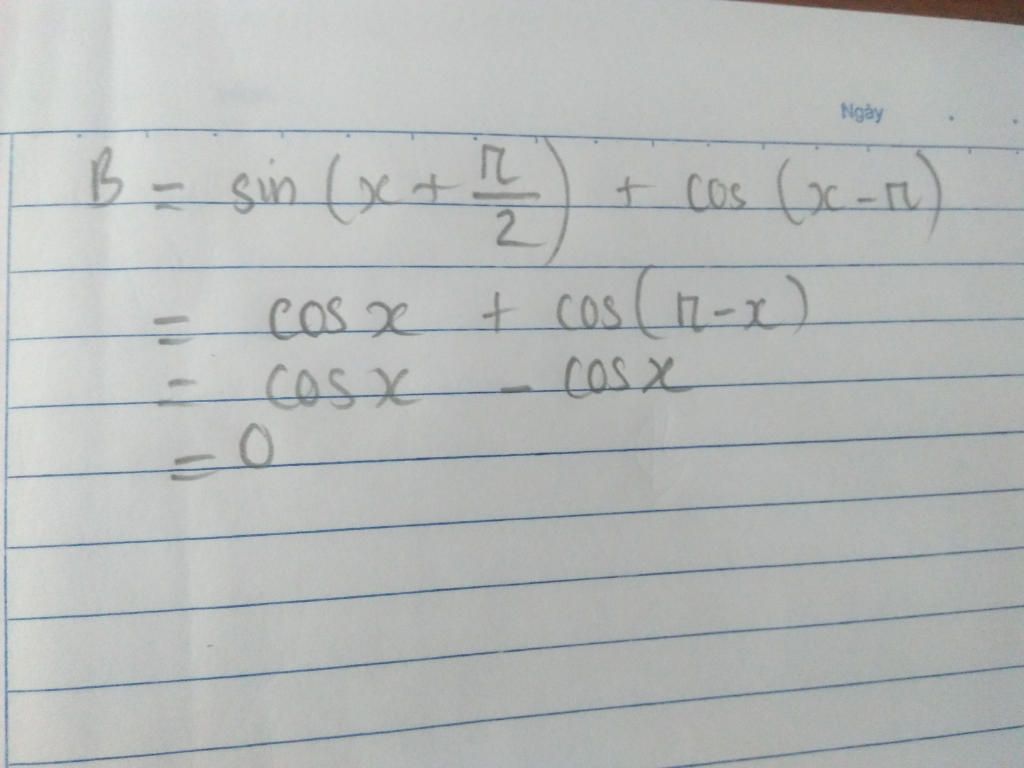 Ngày
B = sin (x + π/2) + cos (x - π)
= cos x + cos (π - x)
= cos x - cos x
= 0